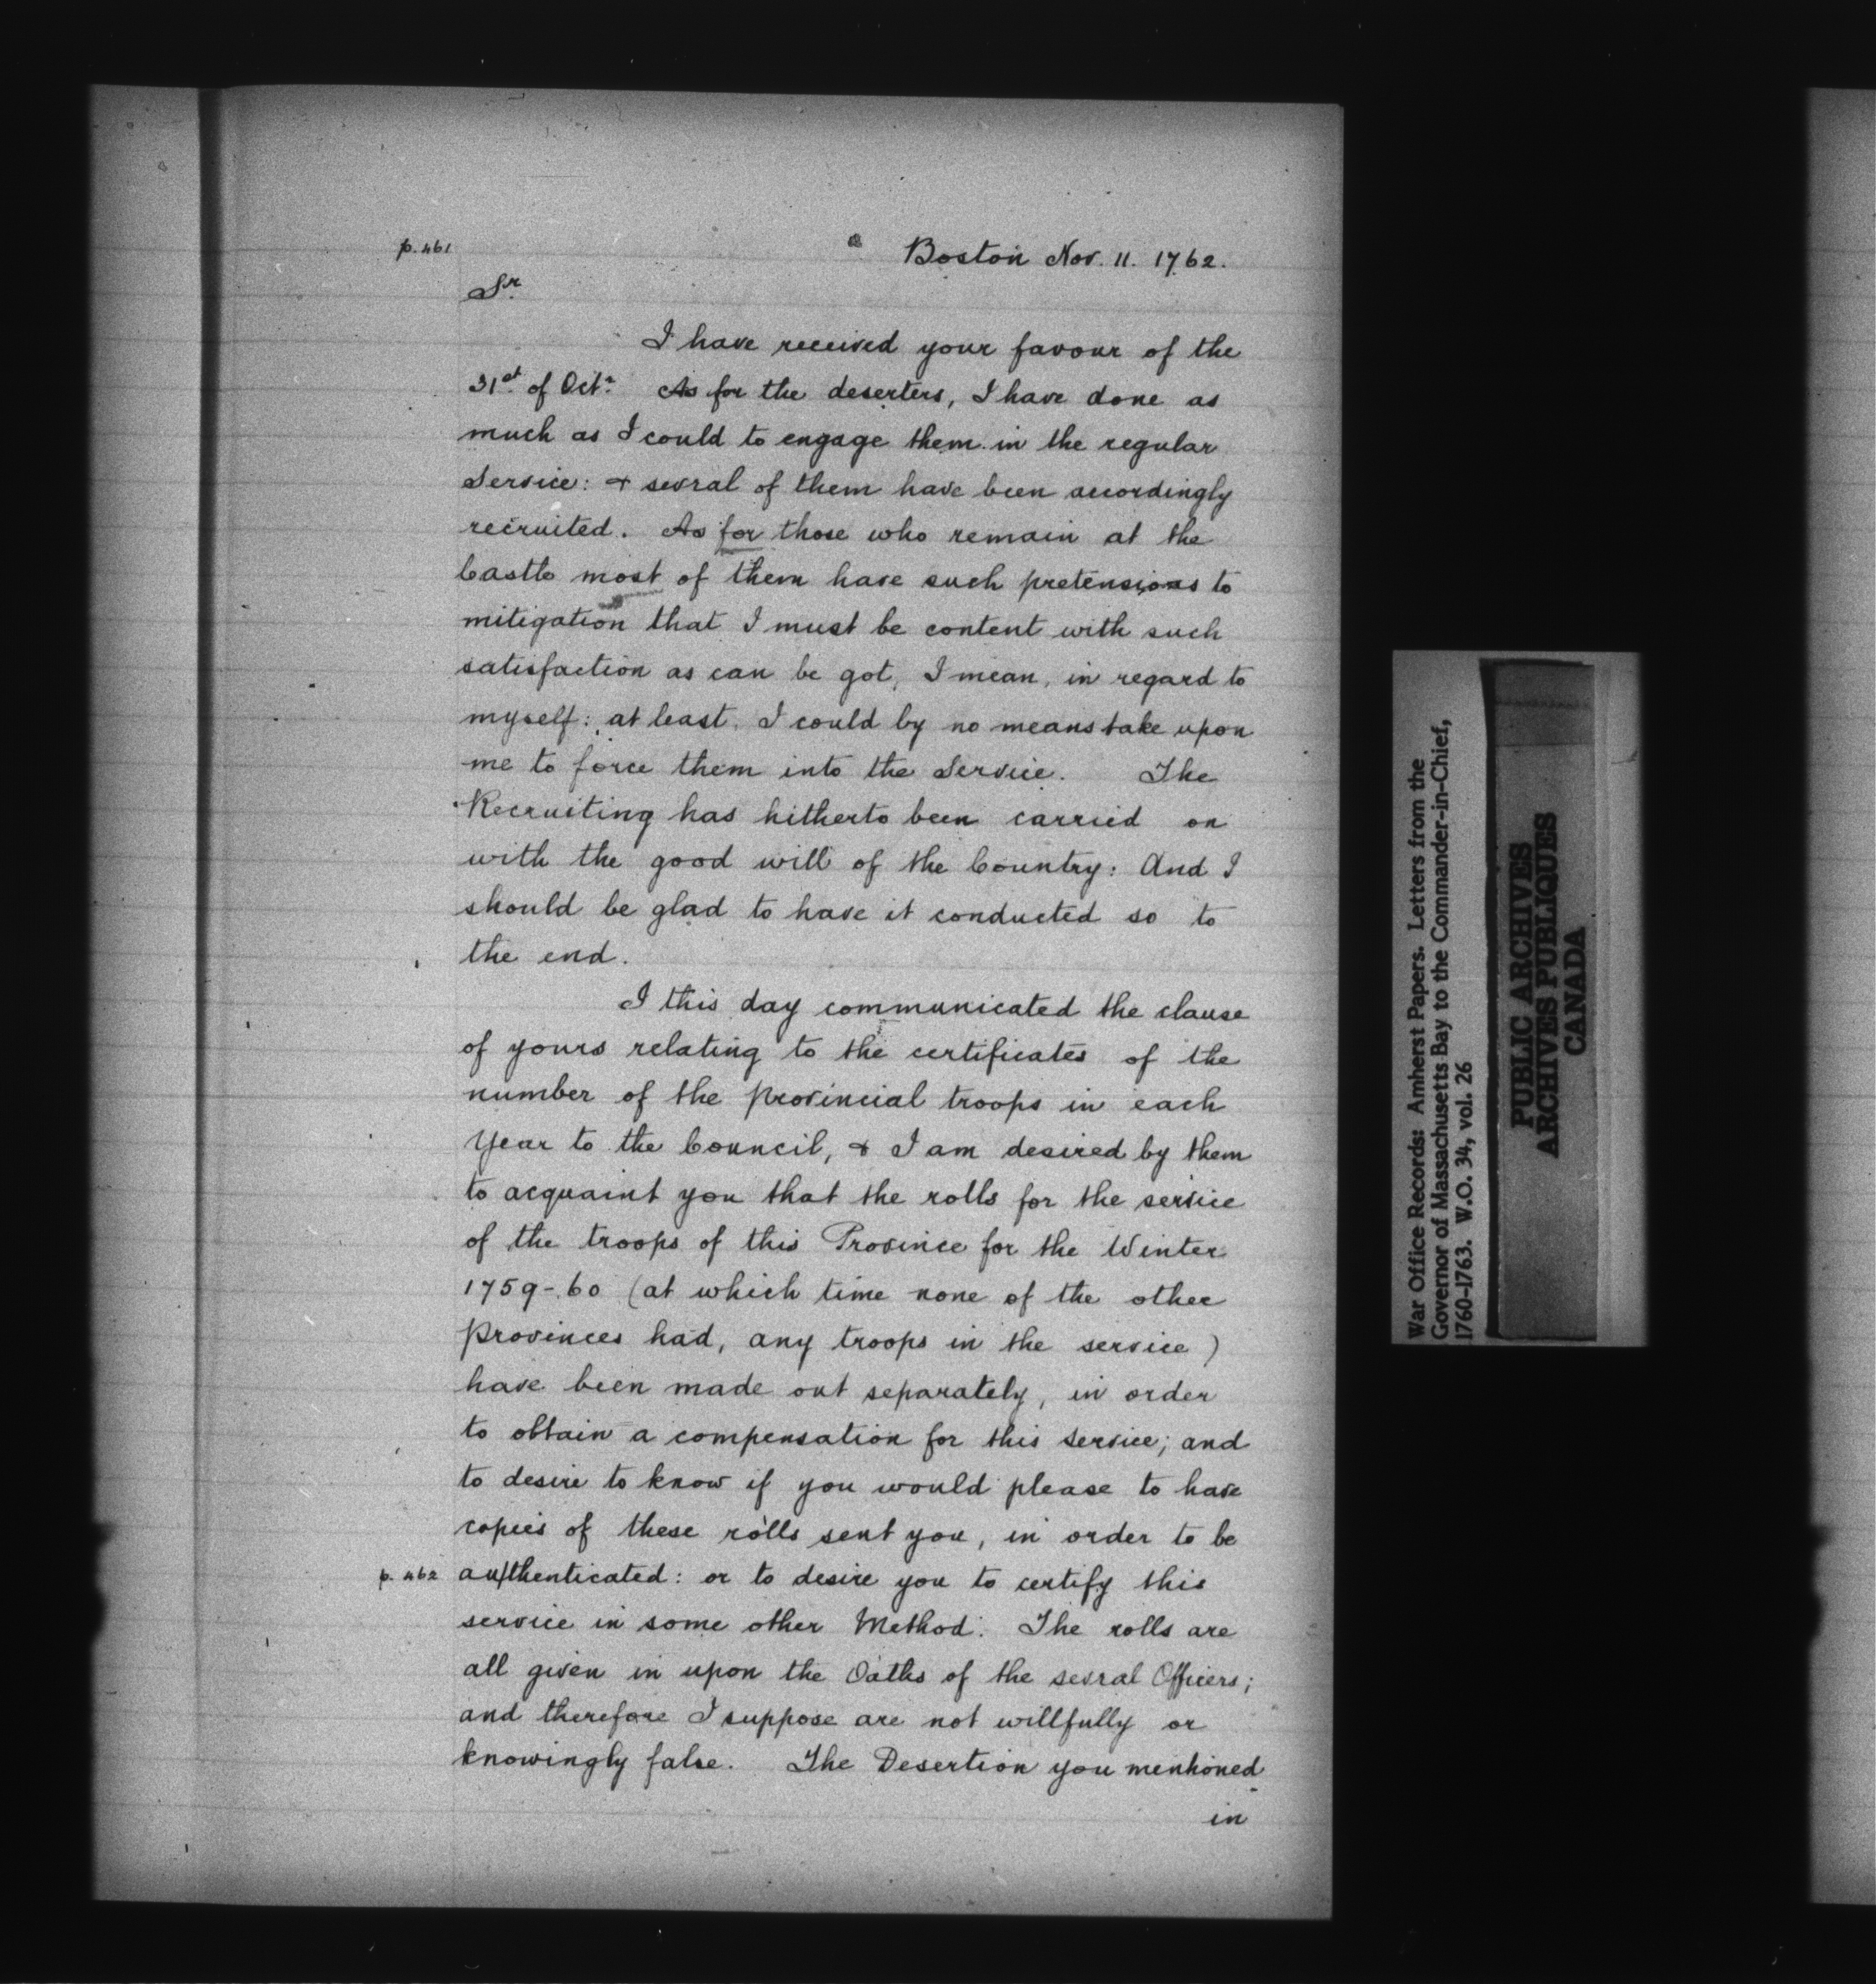 p. 461
Boston Nov. 11. 1762.
Sr.
I have received your favour of the
31st. of Octr. As for the deserters, I have done as
much as I could to engage them in the regular
Service: & sevral of them have been accordingly
recruited. As for those who remain at the
Castle most of them have such pretensions to
mitigation that I must be content with such
satisfaction as can be got, I mean, in regard to
myself: at least. I could by no means take upon
me to force them into the Service. The
Recruiting has hitherto been carried on
with the good will of the Country: And I
should be glad to have it conducted so to
the end.
I this day communicated the clause
of yours relating to the certificates of the
number of the provincial troops in each
Year to the Council, & I am desired by them
to acquaint you that the rolls for the service
of the troops of this Province for the Winter
1759-60 (at which time none of the other
provinces had, any troops in the service)
have been made out separately, in order
to obtain a compensation for this service; and
to desire to know if you would please to have
copies of these rolls sent you, in order to be
p. 462 au/thenticated: or to desire you to certify this
service in some other Method. The rolls are
all given in upon the Oaths of the sevral Officers;
and therefore I suppose are not willfully or
knowingly false. The Desertion you mentioned
in
War Office Records: Amherst Papers. Letters from the
Governor of Massachusetts Bay to the Commander-in-Chief,
1760-1763. W.O. 34, vol. 26
PUBLIC ARCHIVES
ARCHIVES PUBLIQUES
CANADA